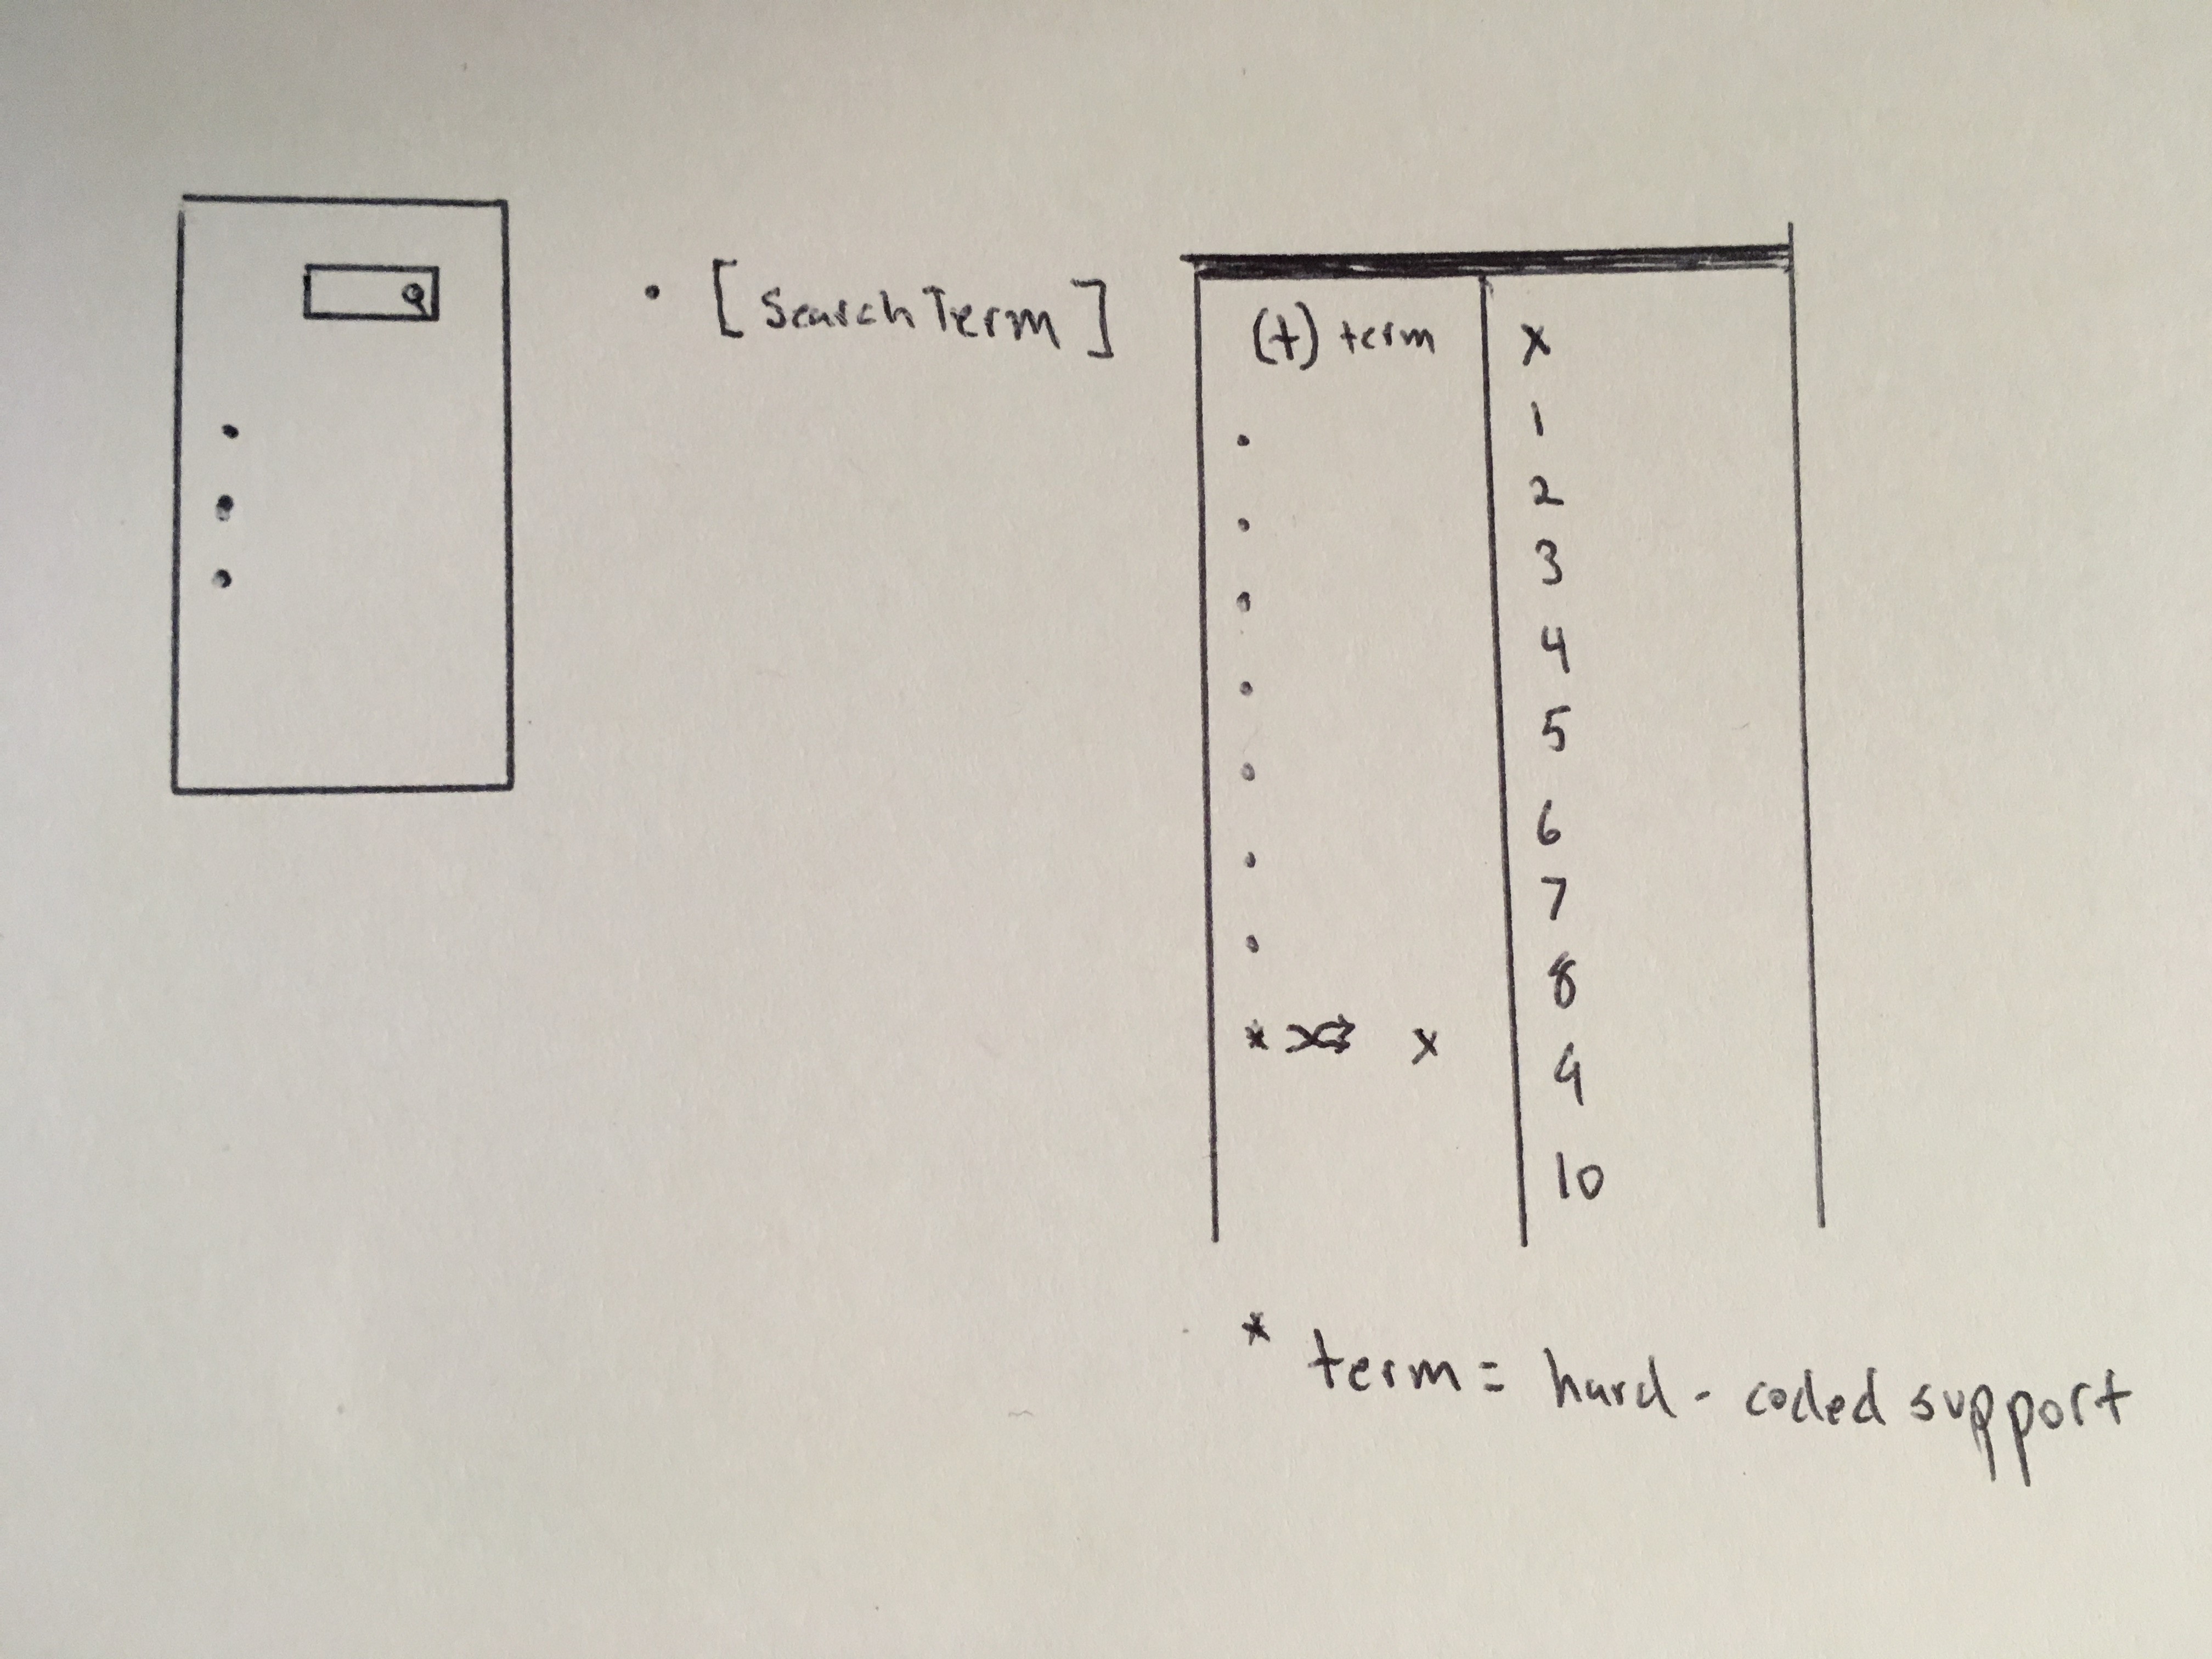 • [SearchTerm]
(t) term x
• 1
• 2
• 3
• 4
• 5
• 6
• 7
8
* x 9
10
* term = hard-coded support